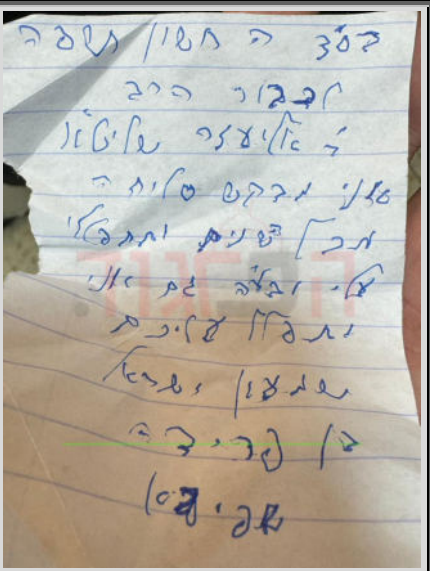 בס"ד ה חשוון תשפה
לכבוד הרב
ר אליעזר שליט"א
אני מבקש סליחה
מכל ותתפללו
עלי ובע"ה גם אני
יתפלל עליכם
שמעון ישראל
בן פרידה